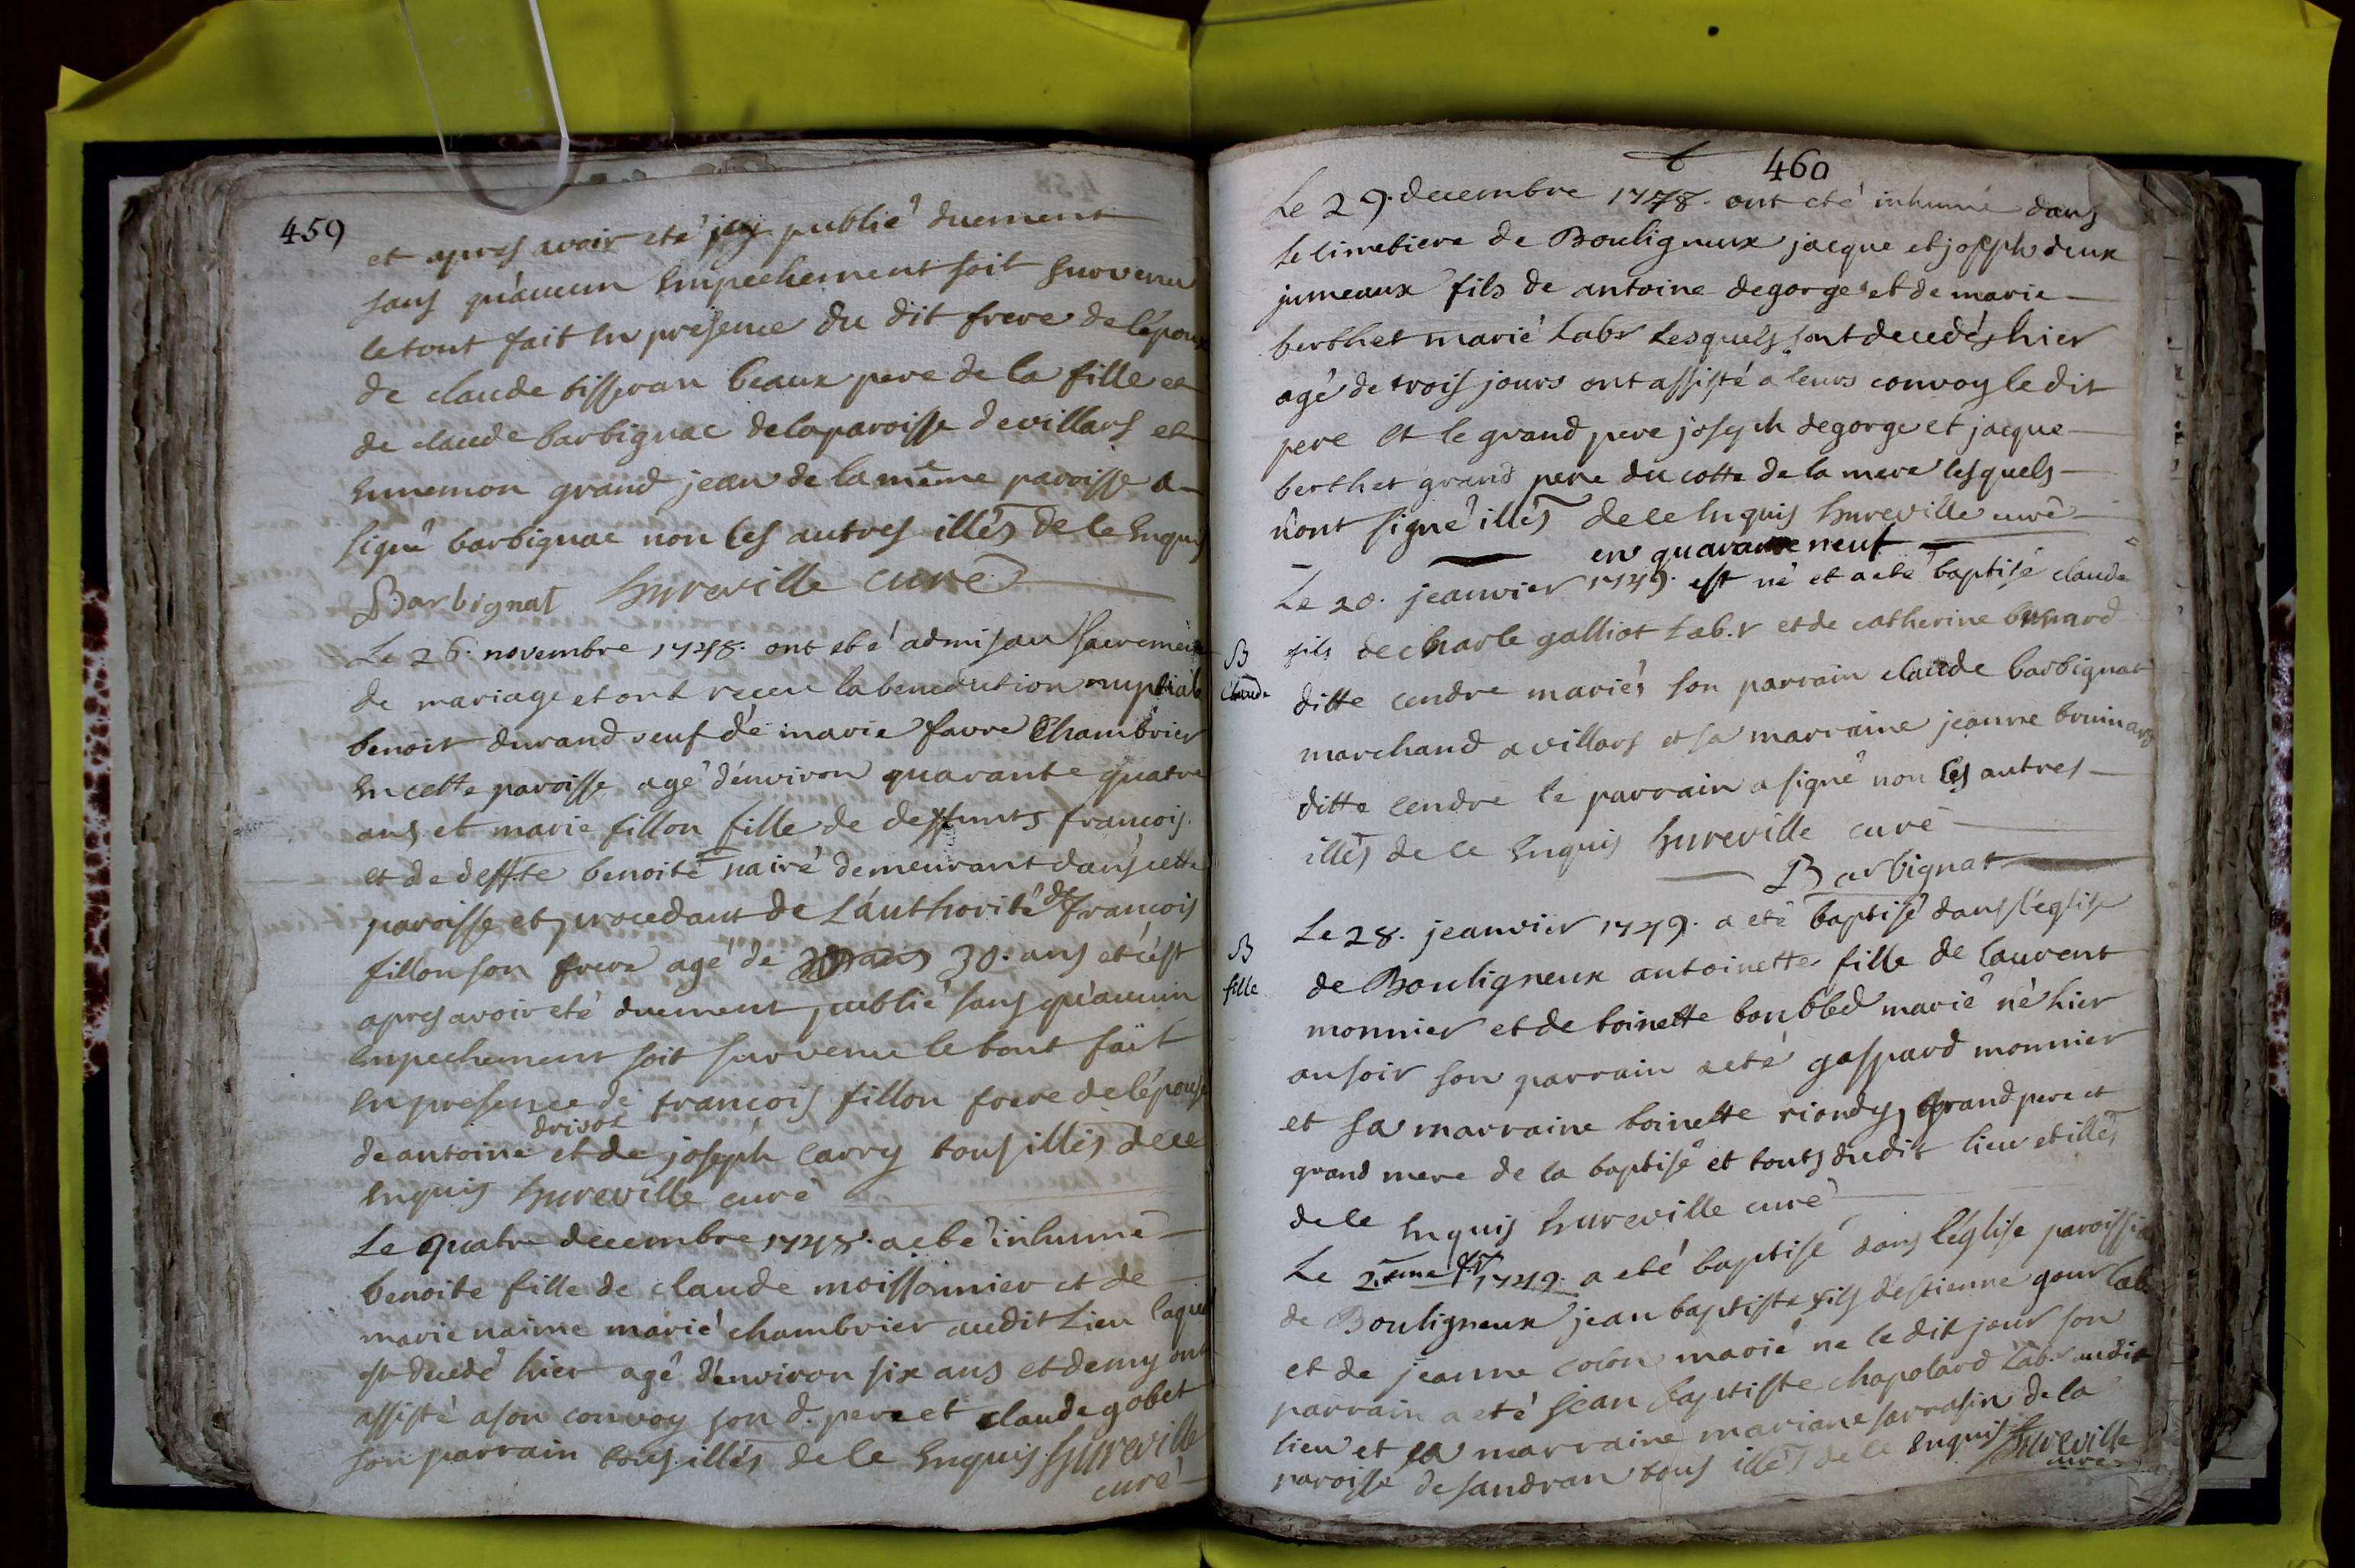 459
et apres avoir eté publié duement
sans qu'aucun Empechement soit survenu
le tout fait En presence du dit frere de l'époux
de claude tisseran beaux pere de la fille et
de claude barbignac de la paroisse de villars et
Ennemon grand jean de la même paroisse a
signé barbignac non les autres illés de ce Enquis
Barbignat hureville curé
Le 26. novembre 1748. ont eté admis au Sacrement
de mariage et ont receu la benediction nuptiale
benoit durand veuf de marie favre Chambrier
En cette paroisse agé d'environ quarante quatre
ans et marie fillon fille de deffunts francois
et de deffte benoite naire demeurant dans cette
paroisse et procedant de L'authorité de francois
fillon son frere agé de 30. ans et c'est
apres avoir eté duement publié sans qu'aucun
Empechement soit survenu le tout fait
En presence de francois fillon frere de l'épouse
de antoine drivot et de joseph carry tous illés de ce
Enquis hureville curé
Le quatre decembre 1748. a eté inhumé
benoite fille de claude moissonnier et de
marie naime marié chambrier audit Lieu laquel
est decedé hier agé d'environ six ans et demy ont
assisté a son convoy son d. pere et claude gobet
son parrain tous illés de ce Enquis hureville
curé
460
Le 29. decembre 1748. ont eté inhumé dans
le cimetiere de Bouligneux jacque et joseph deux
jumeaux fils de antoine degorge et de marie
berthet marié Labr Lesquels sont decedés hier
agé de trois jours ont assisté a leurs convoy le dit
pere et le grand pere joseph degorge et jacque
berthet grand pere du cotte de la mere lesquels
n'ont signé illés de ce Enquis hureville curé
en quarante neuf
Le 20. jeanvier 1749. est né et a eté baptisé claude
B
Claude
fils de charle galliot Lab.r et de catherine
ditte cendre mariés son parrain claude barbignat
marchand a villars et sa marraine jeanne
ditte cendre le parrain a signé non les autres
illés de ce Enquis hureville curé
Barbignat
Le 28. jeanvier 1749. a eté baptisé dans l'église
B
fille
de Bouligneux antoinette fille de laurent
monnier et de toinette bonbled marié né hier
au soir son parrain a eté gaspard monnier
et sa marraine toinette riondy, grand pere et
grand mere de la baptisé et touts dudit lieu et illés
de ce Enquis hureville curé
Le 2.eme fr 1749. a eté baptisé dans l'église paroissia
de Bouligneux jean baptiste fils d'estienne gour lab.
et de jeanne colon marié né le dit jour son
parrain a eté jean baptiste chapolard Lab.r audit
lieu et sa marraine mariane sarrasin de la
paroisse de sandran tous illés de ce Enquis hureville
curé